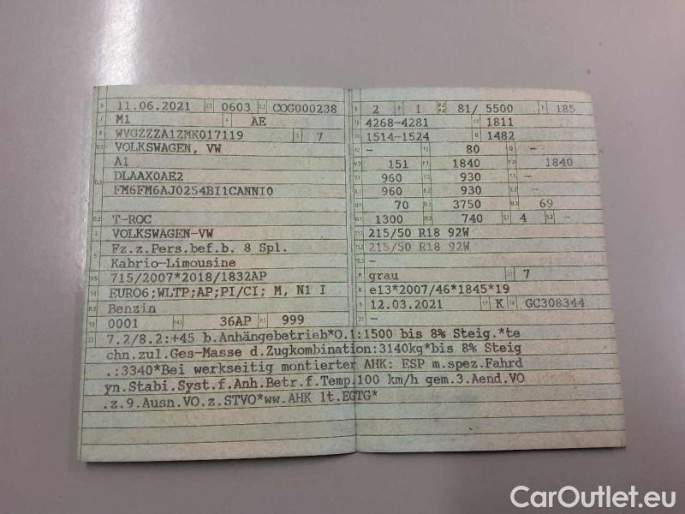 11.06.2021 0603 COG000238
M1 AE
WVGZZZA1ZMK017119 7
VOLKSWAGEN, VW
A1
DLAAX0AE2
FM6FM6AJ0254BI1CANNI0
T-ROC
VOLKSWAGEN-VW
Fz.z.Pers.bef.b. 8 Spl.
Kabrio-Limousine
715/2007*2018/1832AP
EURO6;WLTP;AP;PI/CI; M, N1 I
Benzin
0001 36AP 999
2 1 81/ 5500 185
4268-4281 1811
1514-1524 1482
- 80 -
151 1840 1840
960 930 -
960 930 -
70 3750 69
1300 740 4 -
215/50 R18 92W
215/50 R18 92W
-
grau 7
e13*2007/46*1845*19
12.03.2021 K GC308344
7.2/8.2:+45 b.Anhängebetrieb*O.1:1500 bis 8% Steig.*te
chn.zul.Ges-Masse d.Zugkombination:3140kg*bis 8% Steig
.:3340*Bei werkseitig montierter AHK: ESP m.spez.Fahrd
yn.Stabi.Syst.f.Anh.Betr.f.Temp.100 km/h gem.3.Aend.VO
.z.9.Ausn.VO.z.STVO*ww.AHK lt.EGTG*
CarOutlet.eu